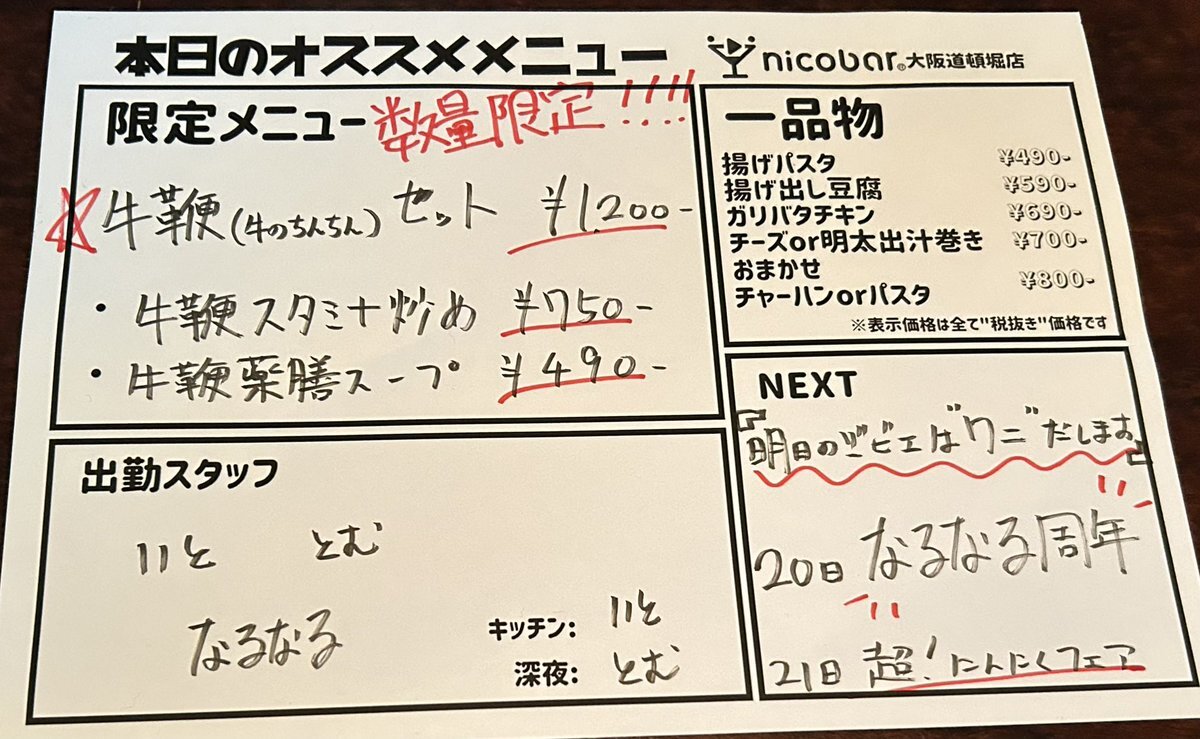 本日のオススメメニュー
nicobar® 大阪道頓堀店
限定メニュー 数量限定!!!!
☆牛鞭(牛のちんちん)セット ¥1,200-
・牛鞭スタミナ炒め ¥750-
・牛鞭薬膳スープ ¥490-
一品物
揚げパスタ ¥490-
揚げ出し豆腐 ¥590-
ガリバタチキン ¥690-
チーズor明太出汁巻き ¥700-
おまかせ
チャーハンorパスタ ¥800-
※表示価格は全て"税抜き"価格です
出勤スタッフ
いと とむ
なるなる
キッチン: いと
深夜: とむ
NEXT
『明日のジビエは"ワニ"だします』
20日 なるなる周年
21日 超!にんにくフェア